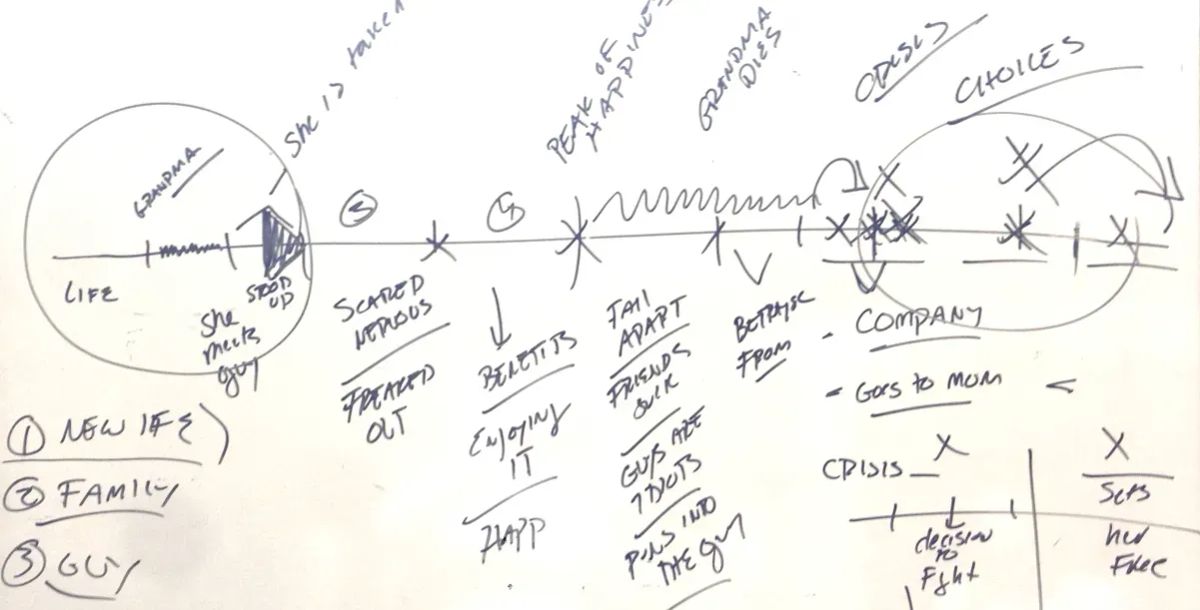 She is taken
PEAK OF
HAPPINESS
GRANDMA
DIES
CRISIS
CHOICES
GRANDMA
3
4
LIFE
STOOD
UP
She
meets
guy
SCARED
NERVOUS
FREAKED
OUT
BENEFITS
ENJOYING
IT
HAPP
FALL
APART
FRIENDS
SUCK
GUYS ARE
IDIOTS
RUNS INTO
THE guy
BETRAYSE
FROM
- COMPANY
- GOES TO MOM
CRISIS
decision
to
Fight
Sets
her
Free
1 NEW LIFE
2 FAMILY
3 GUY